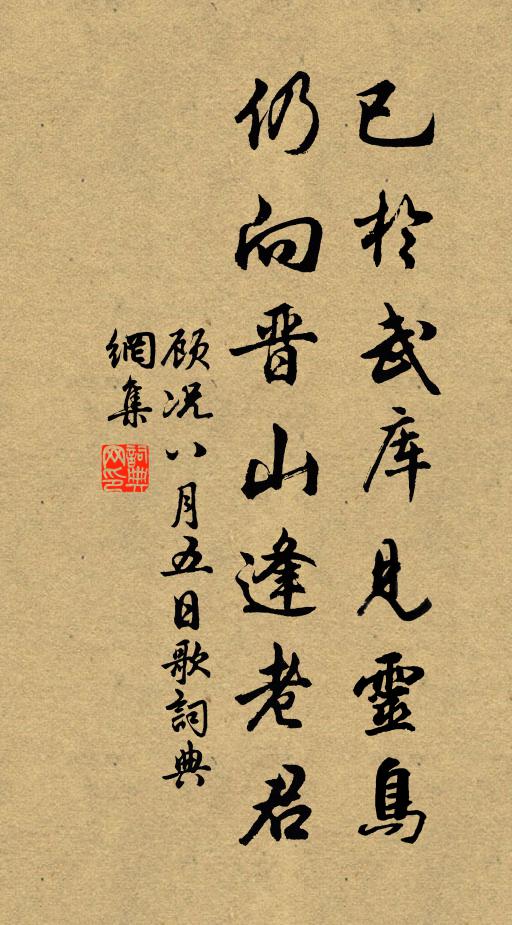 已於武库見靈鳥
仍向晋山逢老君
顾况八月五日歌詞典
網集
詞典網印